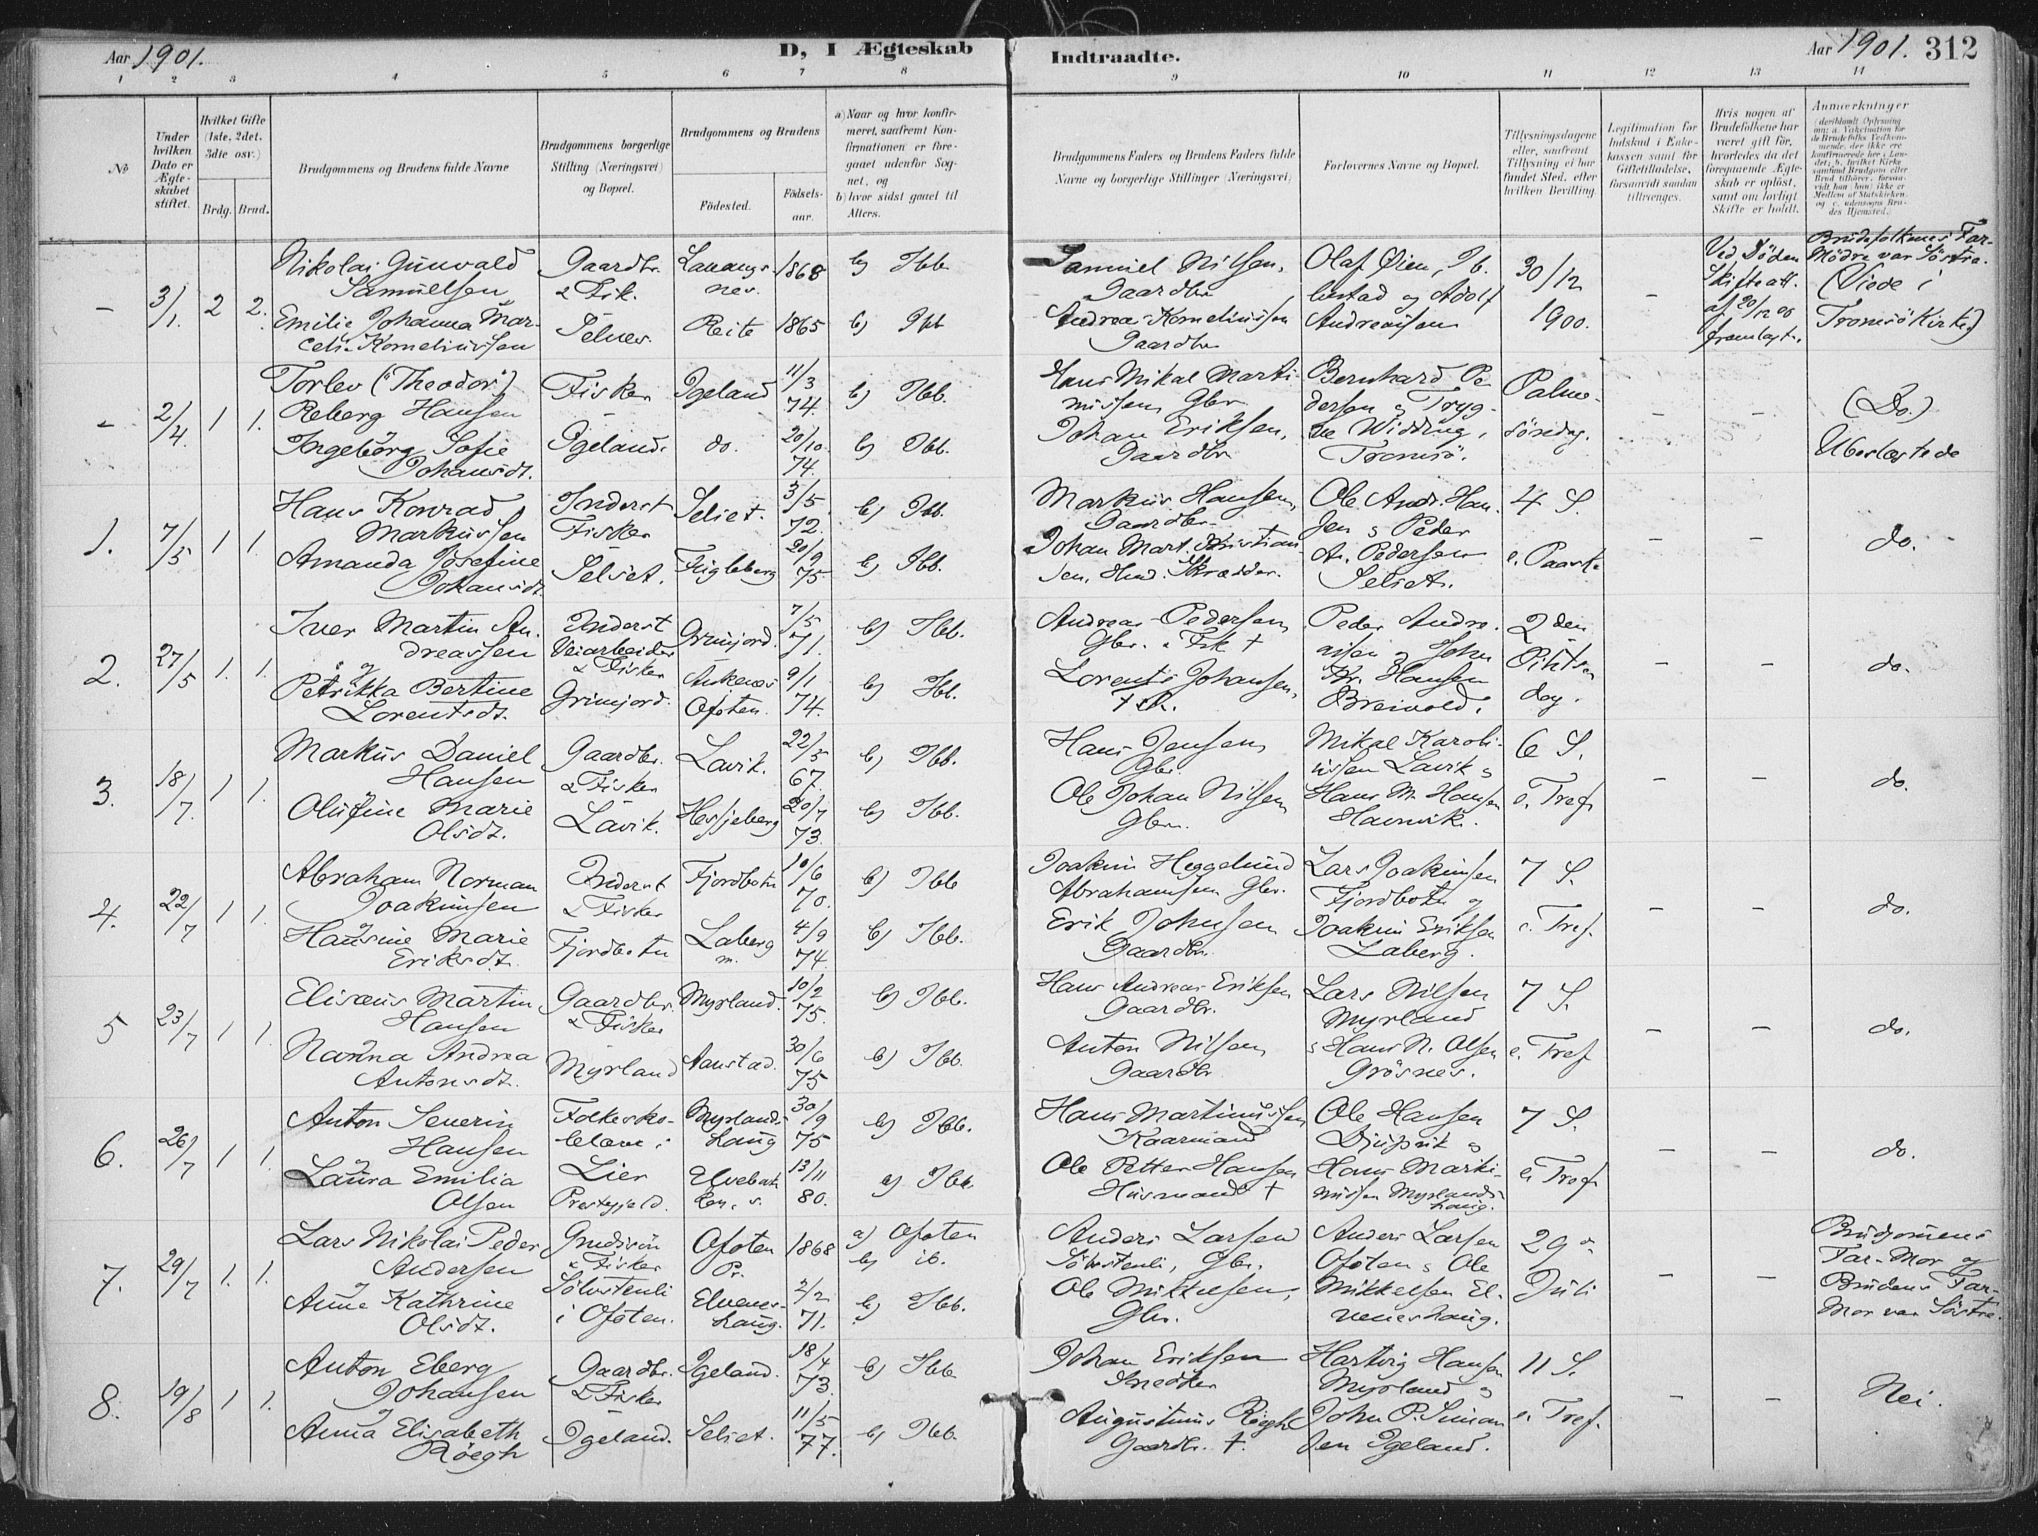 Aar 1901.
D, I Ægteskab
Indtraadte.
Aar 1901. 312
1 2 3 4 5 6 7 8 9 10 11 12 13 14
No
Under hvilken Dato er Ægteskabet stiftet.
Hvilket Gifte (1ste, 2det, 3die osv.)
Brdg. Brud.
Brudgommens og Brudens fulde Navne
Brudgommens borgerlige Stilling (Næringsvei) og Bopæl.
Brudgommens og Brudens
Födested. Födselsaar.
a) Naar og hvor konfirmeret, saafremt Konfirmationen er foregaaet udenfor Sognet, og
b) hvor sidst gaaet til Alters.
Brudgommens Faders og Brudens Faders fulde Navne og borgerlige Stillinger (Næringsvei)
Forlovernes Navne og Bopæl.
Tillysningsdagene eller, saafremt Tillysning ei har fundet Sted, efter hvilken Bevilling.
Legitimation for Indskud i Enkekassen samt for Giftetilladelse, forsaavidt saadan tiltrænges.
Hvis nogen af Brudefolkene har været gift før, hvorledes da det foregaaende Ægteskab er opløst, samt om lovligt Skifte er holdt.
Anmærkninger
– 3/1 2 2.
Nikolai Gunvald Samuelsen
Gaardbr. & Fisk.
1868 b) Ibb.
Samuel Nilsen, Gaardbr.
Olaf Øien, Ibbestad og Adolf Andreassen
30/12 1900.
Emilie Johanna Marceli. Korneliussen
Selnes Reite 1865 b) Ibb
Andreas Korneliussen Gaardbr
Ved Døden Skifteatt. af 20/12 00 fremlagt.
Brudefolkenes Far-Mødre var Søstre. (Viede i Tromsø Kirke)
– 2/4 1 1.
Torlev ("Theodor") Reberg Hansen
Fisker Igeland 11/3 74. b) Ibb.
Hans Mikal Martinussen Gbr.
Bernhard Pedersen & Trygve Widding, Tromsø.
Palmesöndag. – – (Do.)
Ingeborg Sofie Johansdt.
Igeland. do. 20/10 74. b) Ibb.
Johan Eriksen, Gaardbr
Ubeslægtede
1. 7/5 1 1.
Hans Konrad Markussen
Inderst Fisker Selset. 3/5 72. b) Ibb.
Markus Hansen, Gaardbr.
Ole Andr. Hansen & Peder An. Pedersen Selset.
4 S. e. Paaske – – do.
Amanda Josefine Johansdt.
Selset. Fugleberg 20/9 75 b) Ibb.
Johan Mart. Kristiansen, Hmd. Skrædder.
2. 27/5 1. 1.
Iver Martin Andreassen
Inderst Veiarbeider & Fisker Grimjord. 7/5 71. b) Ibb.
Andreas Pedersen, Gbr. & Fisk †
Peder Andreassen & John Kr. Hansen Breivold.
2den Pintsedag. – – do.
Petrikka Bertine Lorentsdt.
Grimjord. Ankenes Ofoten. 9/1 74. b) Ibb.
Lorents Johansen,
3. 18/7. 1 1.
Markus Daniel Hansen
Gaardbr. & Fisker Lavik. 22/5 67. b) Ibb.
Hans Jensen, Gbr.
Mikal Karoliussen Lavik & Hans M. Hansen Havnvik.
6 S. e. Tref – – do.
Olufine Marie Olsdt.
Lavik. Hessjeberg 20/7 73. b) Ibb.
Ole Johan Nilsen, Gbr.
4. 22/7 1 1.
Abraham Norman Joakimsen
Inderst & Fisker Fjordbotn 10/6 70. b) Ibb
Joakim Heggelund Abrahamsen Gbr.
Lars Joakimsen Fjordbotn og Joakim Eriksen Laberg.
7 S. e. Tref. – – do.
Hansine Marie Eriksdt.
Fjordbotn Laberg 4/9 74. b) Ibb.
Erik Johnsen Gaardbr.
5 23/7 1 1.
Elisæus Martin Hansen
Gaardbr. & Fisker Myrland. 10/2 75. b) Ibb.
Hans Andreas Eriksen Gaardbr.
Lars Nilsen Myrland & Hans N. Olsen Grøsnes.
7 S. e. Tref – – do.
Nanna Andrea Antonsdt.
Myrland Aanstad. 30/6 75 b) Ibb.
Anton Nilsen, Gaardbr
6. 26/7 1 1.
Anton Severin Hansen
Folkeskolelærer i Myrlandshaug 30/9 75 b) Ibb.
Hans Martinussen Kaarmand
Ole Hansen Djupvik & Hans Martinussen Myrlandshaug.
7 S. e. Tref – – do.
Laura Emilia Olsen
Lier Prestegjeld. 13/11 80. a) Ibb.
Ole Petter Hansen Husmand †
7. 29/7 1. 1.
Lars Nikolai Peder Andersen
& Fisker Ofoten Pr. 1868 a) Ofoten b) ib.
Anders Larsen Sølvstenli, Gbr.
Anders Larsen Ofoten & Ole Mikkelsen Elveneshaug.
29de Juli – –
Brudgommens Far-Mor og Brudens Far-Mor var Søstre.
Anne Kathrine Olsdt.
Sølvstenli i Ofoten. Elveneshaug. 2/2 71. b) Ibb.
Ole Mikkelsen, Gbr.
8. 19/8 1 1.
Anton Eberg Johansen
Gaardbr. & Fisker Igeland. 18/4 73. b) Ibb
Johan Eriksen Snedker
Hartvig Hansen Myrland & John P. Simonsen Igeland.
11 S. e. Tref. – – Nei.
Anna Elisabeth Røegh
Igeland. Selset. 11/5 77. b) Ibb.
Augustinus Røegh Gaardbr. †.